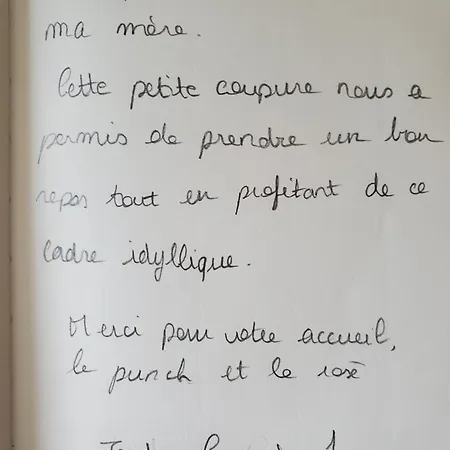 ma mère.
Cette petite coupure nous a
permis de prendre un bon
repos tout en profitant de ce
cadre idyllique.
Merci pour votre accueil,
le punch et le rosé